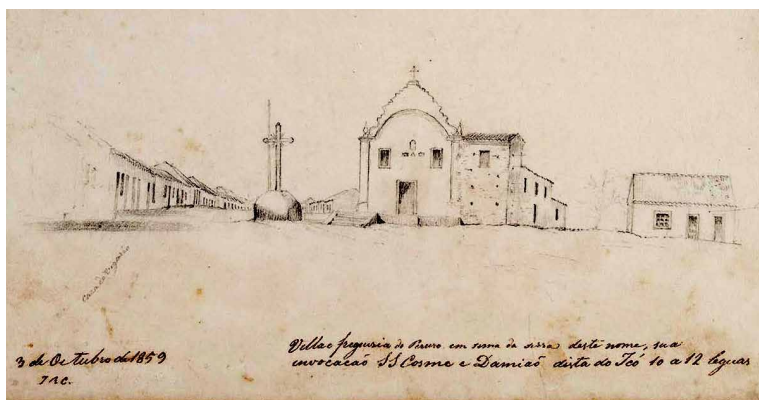 Casa do Vigario
3 de Octubro de 1859
Villa e freguesia do Pereiro em cima da serra deste nome, sua
invocacaõ SS Cosme e Damiaõ dista do Icó 10 a 12 leguas